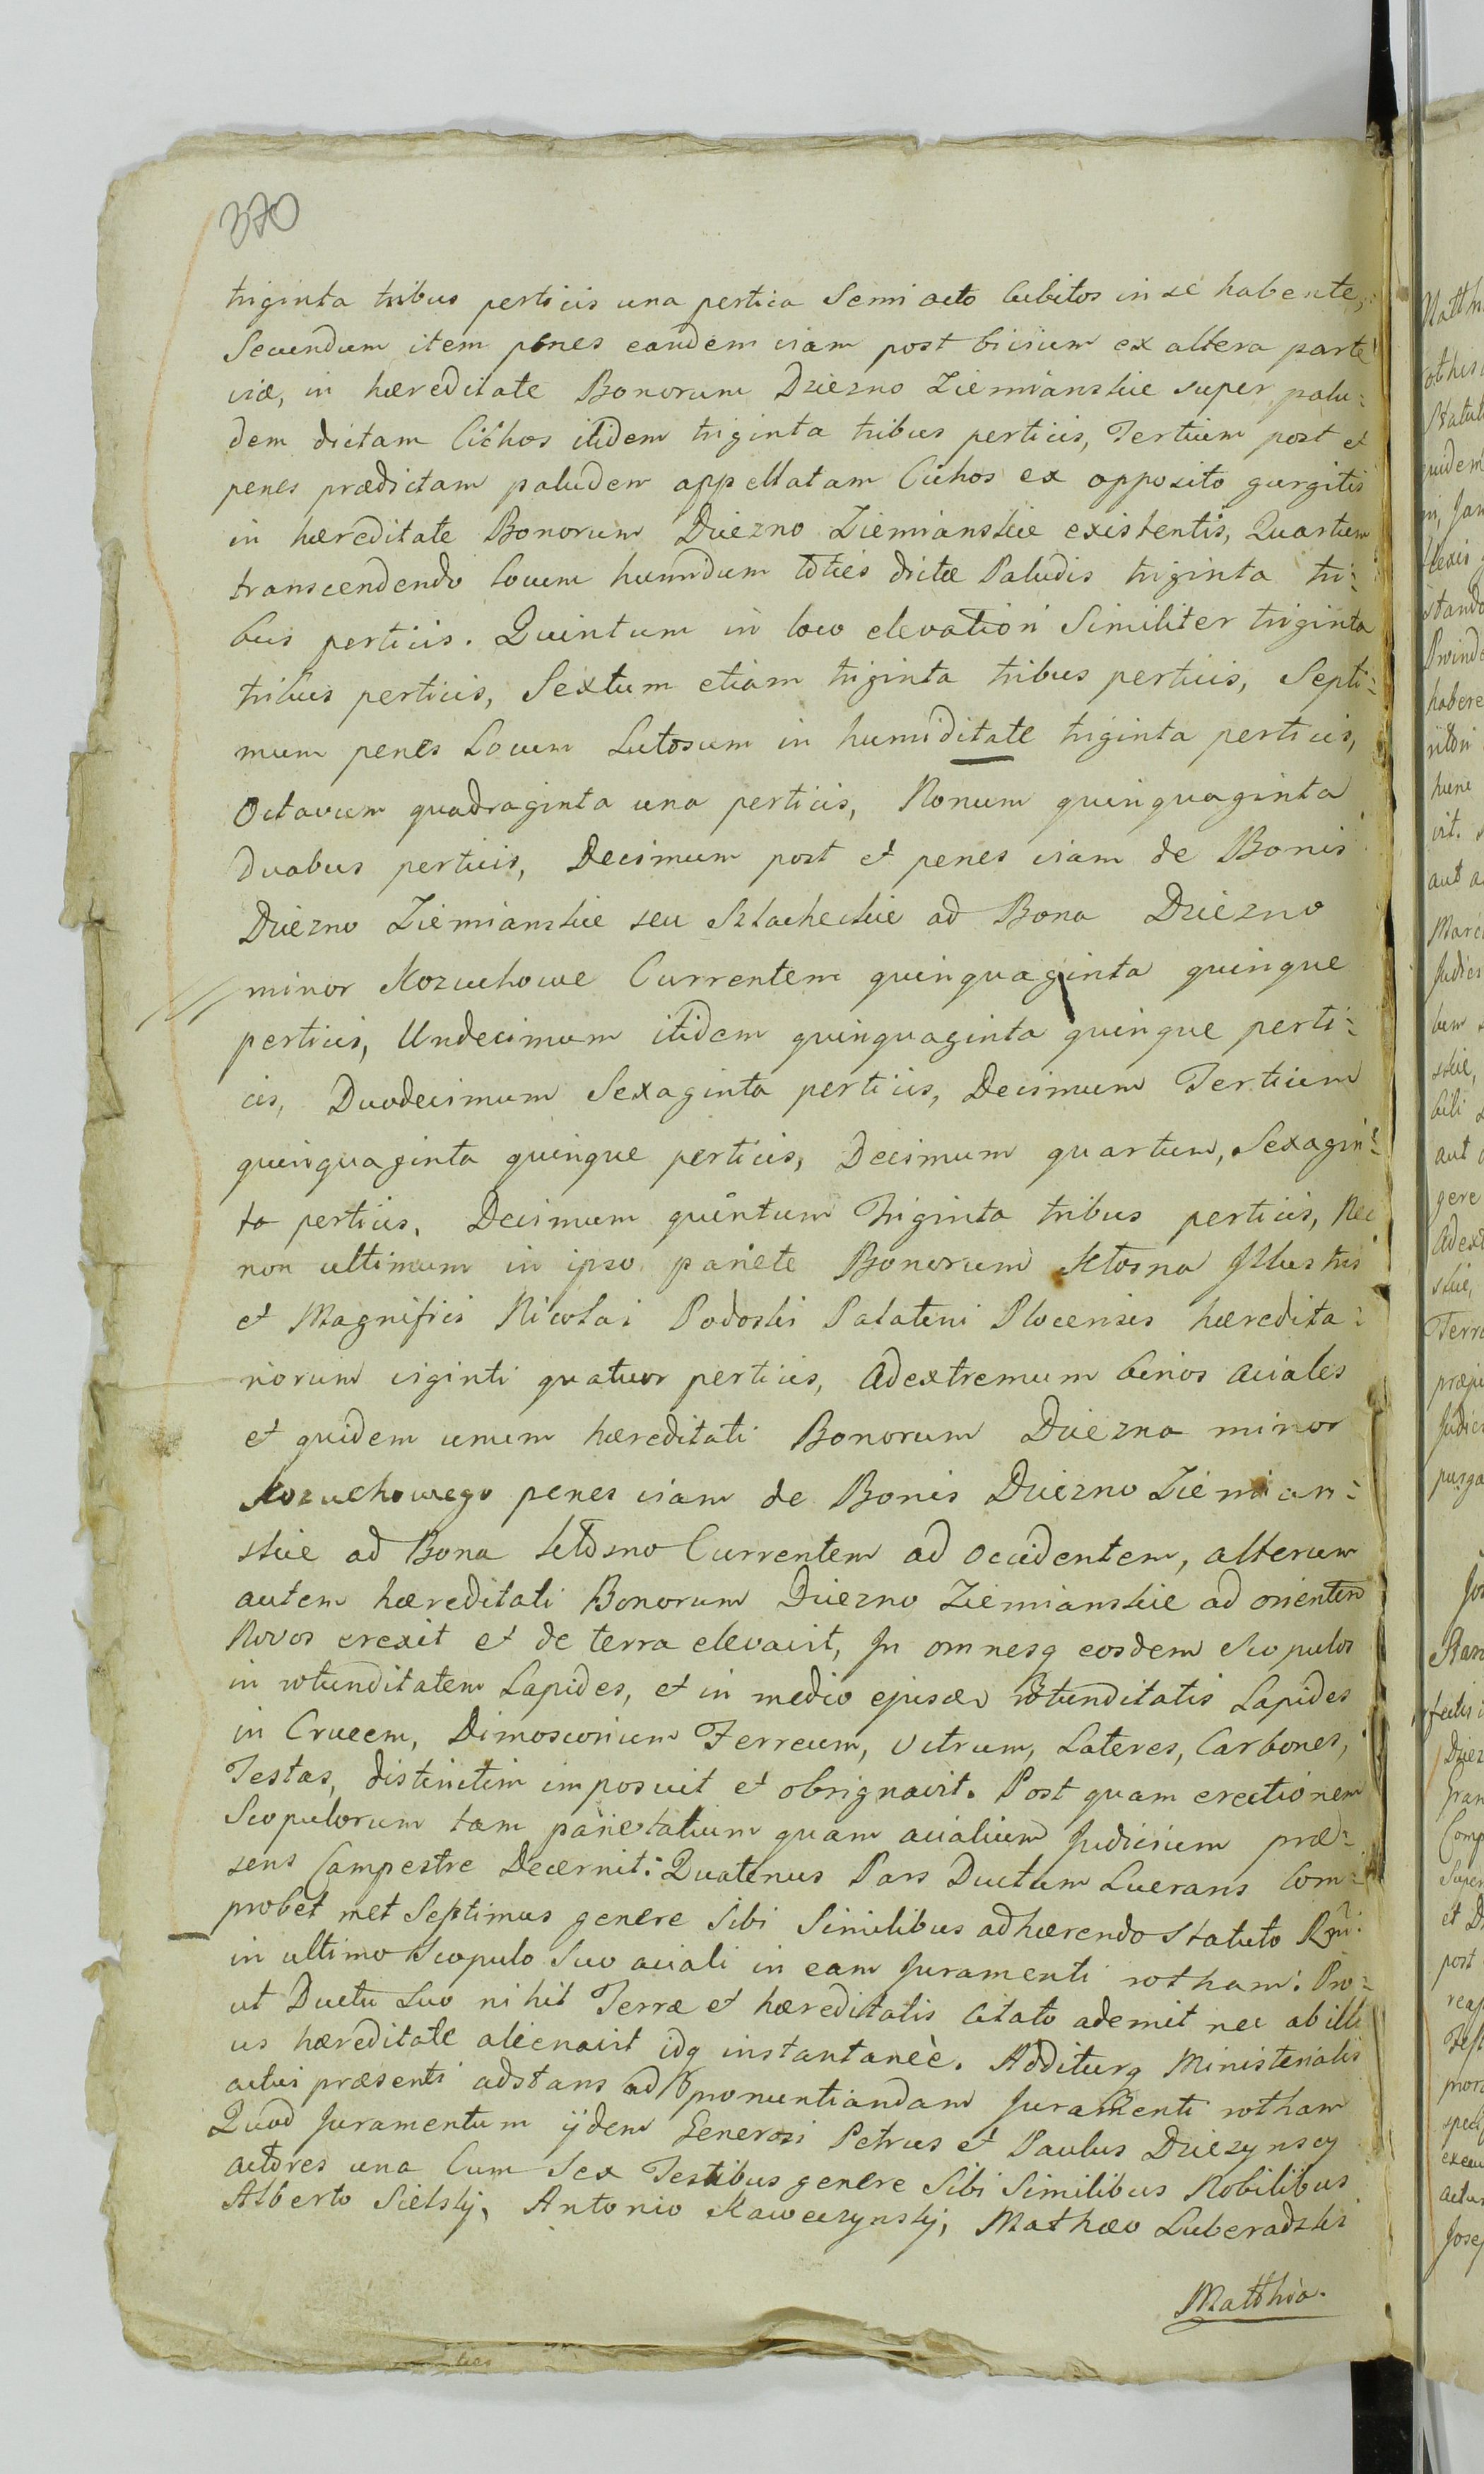 370
triginta tribus perticis una pertica Semi octo Cubitos in se habente,
Secundum item penes eandem viam post bivium ex altera parte
viæ, in hæreditate Bonorum Dziezno Ziemianskie super palu=
dem dictam Cichos itidem triginta tribus perticis, Tertium post et
penes prædictam paludem appellatam Cichos ex opposito gurgitis
in hæreditate Bonorum Dziezno Ziemianskie existentis, Quartum
transcendendo locum humidum toties dictæ Paludis triginta tri=
bus perticis. Quintum in loco elevatiori Similiter triginta
tribus perticis, Sextum etiam triginta tribus perticis, Septi=
mum penes Locum Lutosum in humiditate triginta perticis,
Octavum quadraginta una perticis, Nonum quinquaginta
duabus perticis, Decimum post et penes viam de Bonis
Dziezno Ziemianskie seu Szlacheckie ad Bona Dziezno
minor Kozuchowe Currentem quinquaginta quinque
perticis, Undecimum itidem quinquaginta quinque perti=
cis, Duodecimum Sexaginta perticis, Decimum Tertium
quinquaginta quinque perticis, Decimum quartum, Sexagin=
ta perticis, Decimum quintum Triginta tribus perticis, Nec
non ultimum in ipso pariete Bonorum Ktosna Illustris
et Magnifici Nicolai Podoski Palatini Plocensis hæredita=
riorum viginti quatuor perticis, Ad extremum binos aciales
et quidem unum hæreditati Bonorum Dziezna minor
Kozuchowego penes viam de Bonis Dziezno Ziemian=
skie ad Bona Ktosno Currentem ad occidentem, alterum
autem hæreditati Bonorum Dziezno Ziemianskie ad orientem
Novos erexit et de terra elevavit, In omnesq eosdem Scopulos
in rotunditatem Lapides, et in medio ejusdem rotunditatis Lapides
in Crucem, Dimoscorium Ferreum, vitrum, Lateres, Carbones,
Testas, distinctim imposuit et obrignavit. Post quam erectionem
Scopulorum tam parietalium quam acialium Judicium præ=
sens Campestre Decernit: Quatenus Pars Ductum Lucrans Com=
probet met Septimus genere Sibi Similibus adhærendo Statuto Rgni.
in ultimo Scopulo suo aciali in eam Juramenti rotham: Pro=
ut Ductu Suo nihil Terræ et hæreditatis Citato ademit nec ab illi
us hæreditate alienavit idq instantaneè. Additurq Ministerialis
actui præsenti adstans ad pronuntiandam Juramenti rotham
Quod Juramentum ijdem Generosi Petrus et Paulus Dziezynscy
actores una Cum Sex Testibus genere Sibi Similibus Nobilibus
Alberto Sielskj, Antonio Kaweczynskj, Mathæo Luberadzki
Matthia.